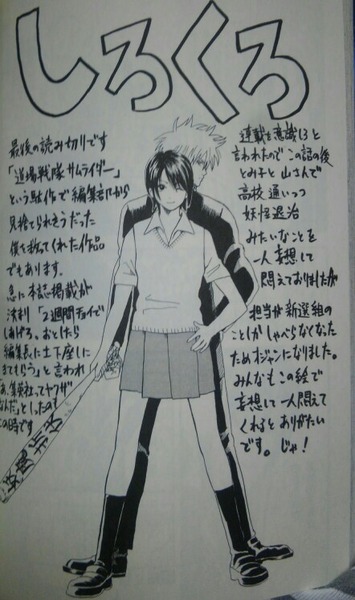 しろくろ
最後の読み切りです
「道場戦隊サムライダー」
という駄作で編集部から
見捨てられそうだった
僕を救ってくれた作品
でもあります。
急に本誌掲載が
決まり「2週間チョイで
しあげろ、おとしたら
編集長に土下座しに
きてもらう」と言われ
あ、集英社ってヤクザ
なんだ」としったのも
この時です
連載を意識しろと
言われたので この話の後
とみ子と山さんで
高校通いつつ
妖怪退治
みたいなことを
一人妄想して
悶えておりましたが
担当が新選組の
ことしかしゃべらなくなった
ためオジャンになりました。
みんなもこの絵で
妄想して一人悶えて
くれるとありがたい
です。じゃ!